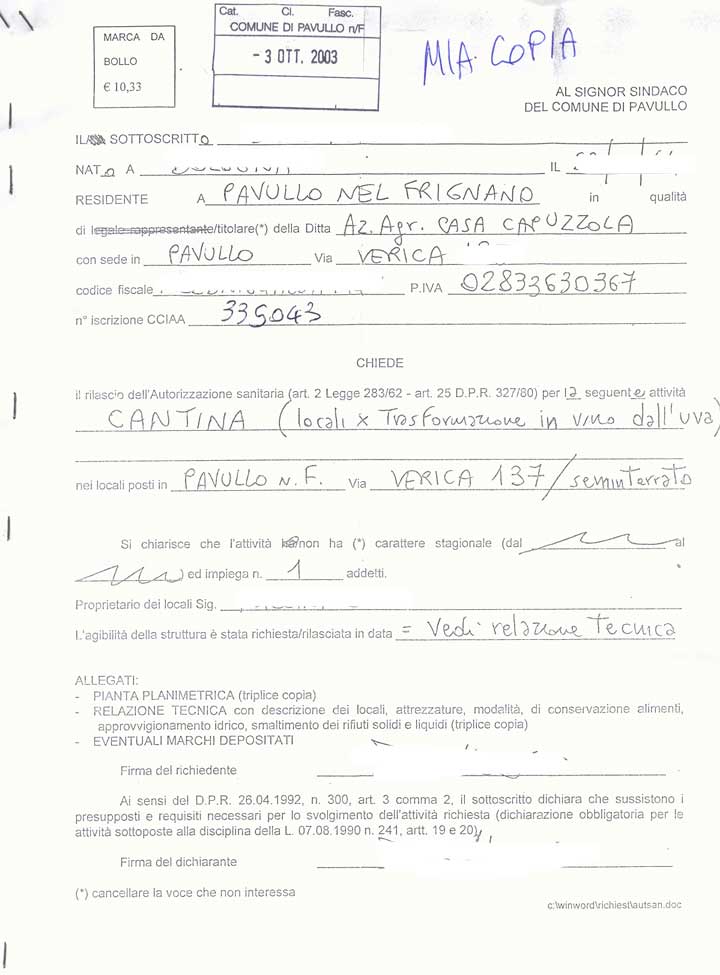 Cat. Cl. Fasc.
COMUNE DI PAVULLO n/F
- 3 OTT. 2003
MARCA DA
BOLLO
€ 10,33
MIA COPIA
AL SIGNOR SINDACO
DEL COMUNE DI PAVULLO
SOTTOSCRITTO
NATO A IL
RESIDENTE A PAVULLO NEL FRIGNANO in qualità
di legale rappresentante/titolare(*) della Ditta Az. Agr. CASA CAPUZZOLA
con sede in PAVULLO Via VERICA
codice fiscale P.IVA 02833630367
n° iscrizione CCIAA 335043
CHIEDE
il rilascio dell'Autorizzazione sanitaria (art. 2 Legge 283/62 - art. 25 D.P.R. 327/80) per la seguente attività
CANTINA (locali x Trasformazione in vino dall'uva)
nei locali posti in PAVULLO N.F. Via VERICA 137/seminterrato
Si chiarisce che l'attività ha/non ha (*) carattere stagionale (dal al
) ed impiega n. 1 addetti.
Proprietario dei locali Sig.
L'agibilità della struttura è stata richiesta/rilasciata in data = Vedi relazione Tecnica
ALLEGATI:
- PIANTA PLANIMETRICA (triplice copia)
- RELAZIONE TECNICA con descrizione dei locali, attrezzature, modalità, di conservazione alimenti,
approvvigionamento idrico, smaltimento dei rifiuti solidi e liquidi (triplice copia)
- EVENTUALI MARCHI DEPOSITATI
Firma del richiedente
Ai sensi del D.P.R. 26.04.1992, n. 300, art. 3 comma 2, il sottoscritto dichiara che sussistono i
presupposti e requisiti necessari per lo svolgimento dell'attività richiesta (dichiarazione obbligatoria per le
attività sottoposte alla disciplina della L. 07.08.1990 n. 241, artt. 19 e 20)
Firma del dichiarante
(*) cancellare la voce che non interessa
c:\winword\richiest\autsan.doc